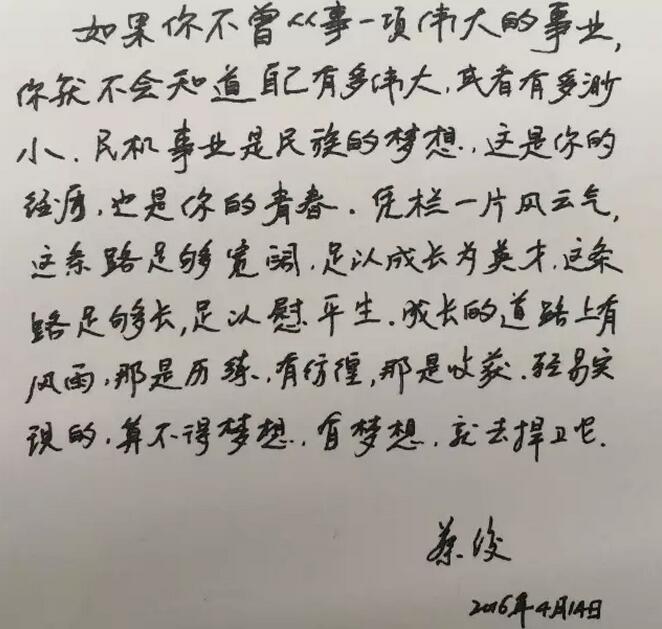 如果你不曾从事一项伟大的事业,
你就不会知道自己有多伟大,或者有多渺
小.民机事业是民族的梦想.这是你的
经历,也是你的青春.凭栏一片风云气,
这条路足够宽阔,足以成长为英才.这条
路足够长,足以慰平生.成长的道路上有
风雨,那是历练,有彷徨,那是收获.轻易实
现的,算不得梦想.有梦想,就去捍卫它.
蔡俊
2016年4月14日